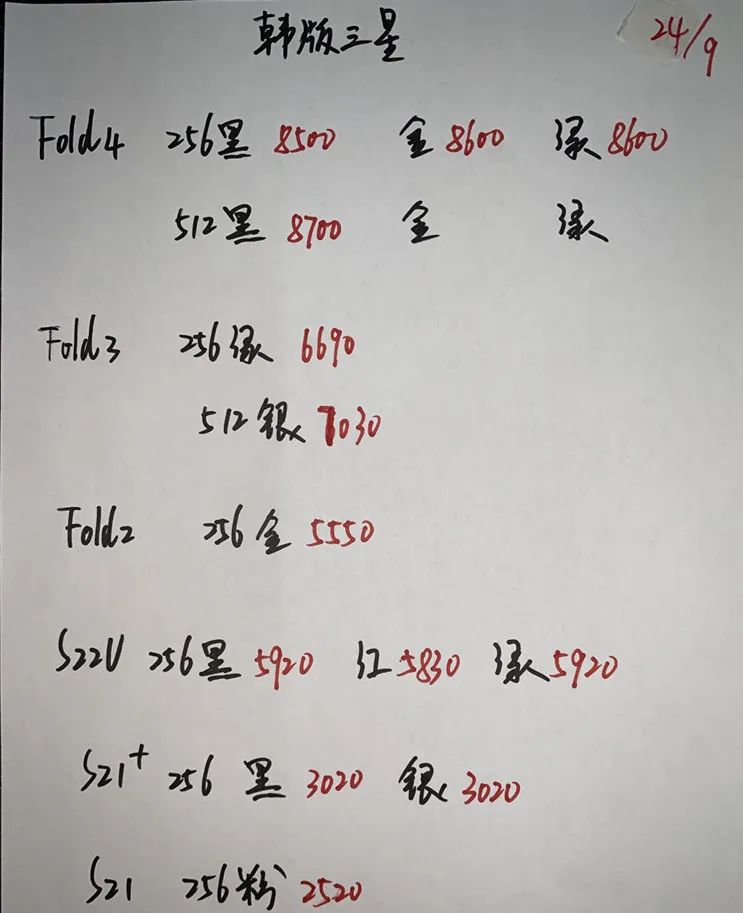 韩版三星 24/9
Fold4 256黑 8500 金 8600 绿 8600
512黑 8700 金 绿
Fold3 256绿 6690
512银 7030
Fold2 256金 5550
S22U 256黑 5920 红 5830 绿 5920
S21+ 256 黑 3020 银 3020
S21 256粉 2520